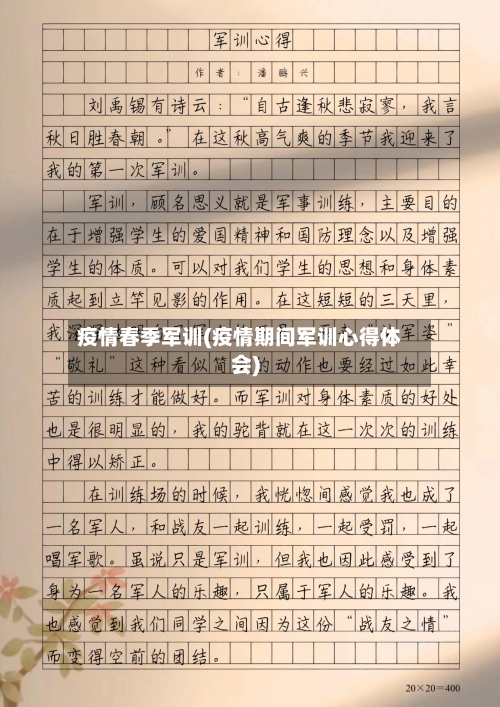 军训心得
作者：潘鹏兴
刘禹锡有诗云：“自古逢秋悲寂寥，我言
秋日胜春朝。”在这秋高气爽的季节我迎来了
我的第一次军训。
军训，顾名思义就是军事训练，主要目的
在于增强学生的爱国精神和国防理念以及增强
学生的体质。可以对我们学生的思想和身体素
质起到立竿见影的作用。在这短短的三天里，
我深 军姿”
疫情春季军训(疫情期间军训心得体
会)
“敬礼”这种看似简 的动作也要经过如此辛
苦的训练才能做好。而军训对身体素质的好处
也是很明显的，我的驼背就在这一次次的训练
中得以矫正。
在训练场的时候，我恍惚间感觉我也成了
一名军人，和战友一起训练，一起受罚，一起
唱军歌。虽说只是军训，但我也因此感受到了
身为一名军人的乐趣，只属于军人的乐趣。我
也感觉到我们同学之间因为这份“战友之情”
而变得空前的团结。
20×20=400